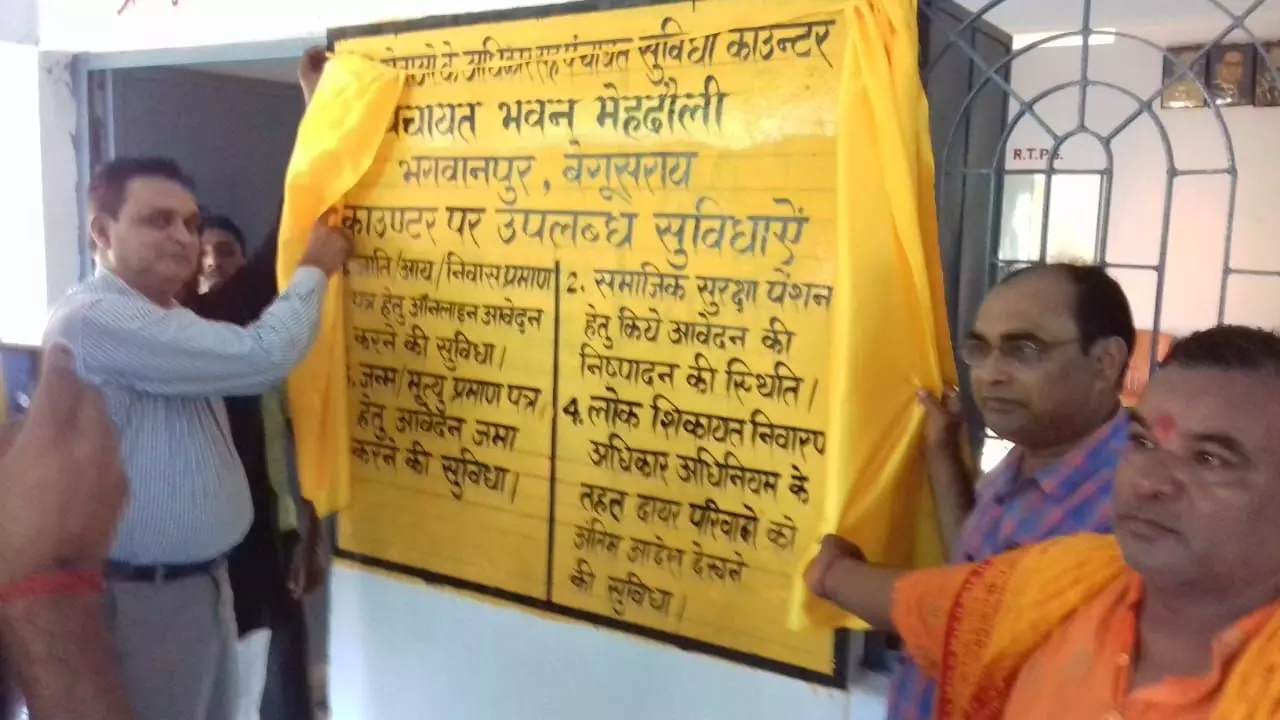 के अधिकार सह पंचायत सुविधा काउन्टर
पंचायत भवन मेहदौली
भगवानपुर, बेगूसराय
काउण्टर पर उपलब्ध सुविधाएँ
जाति/आय/निवास प्रमाण
पत्र हेतु ऑनलाइन आवेदन
करने की सुविधा।
जन्म/मृत्यु प्रमाण पत्र
हेतु आवेदन जमा
करने की सुविधा।
2. समाजिक सुरक्षा पेंशन
हेतु किये आवेदन की
निष्पादन की स्थिति।
4. लोक शिकायत निवारण
अधिकार अधिनियम के
तहत दायर परिवादो को
अंतिम आदेश देखने
की सुविधा।
R.T.P.S.